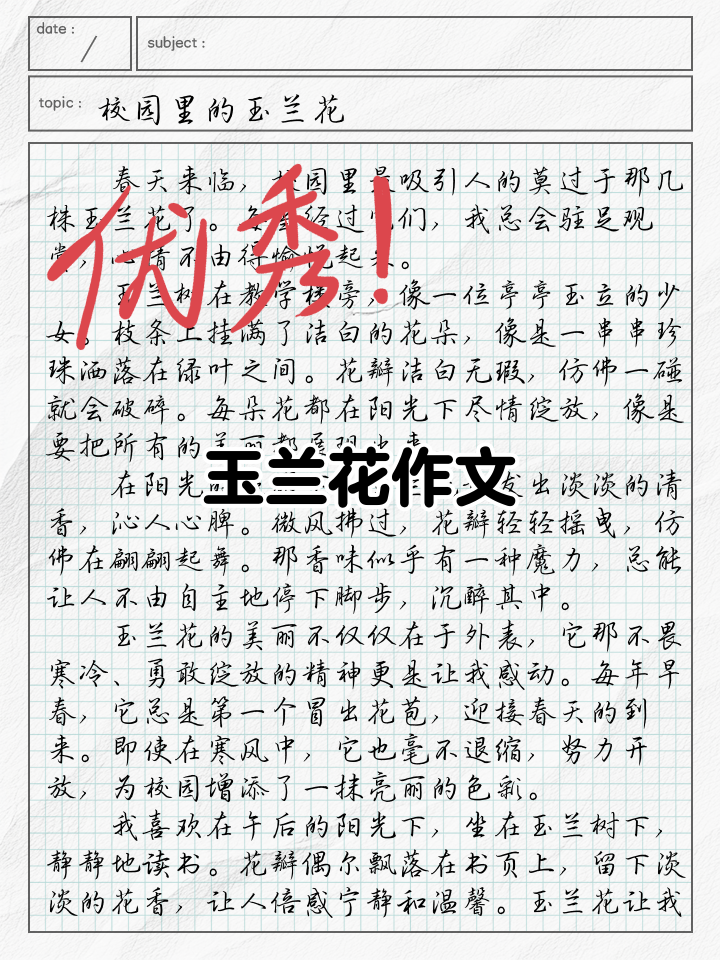 date :
/
subject :
topic : 校园里的玉兰花
优秀!
春天来临，校园里最吸引人的莫过于那几
株玉兰花了。每当经过它们，我总会驻足观
赏，心情不由得愉悦起来。
玉兰树在教学楼旁，像一位亭亭玉立的少
女。枝条上挂满了洁白的花朵，像是一串串珍
珠洒落在绿叶之间。花瓣洁白无瑕，仿佛一碰
就会破碎。每朵花都在阳光下尽情绽放，像是
要把所有的美丽都展现出来。
玉兰花作文
在阳光的 发出淡淡的清
香，沁人心脾。微风拂过，花瓣轻轻摇曳，仿
佛在翩翩起舞。那香味似乎有一种魔力，总能
让人不由自主地停下脚步，沉醉其中。
玉兰花的美丽不仅仅在于外表，它那不畏
寒冷、勇敢绽放的精神更是让我感动。每年早
春，它总是第一个冒出花苞，迎接春天的到
来。即使在寒风中，它也毫不退缩，努力开
放，为校园增添了一抹亮丽的色彩。
我喜欢在午后的阳光下，坐在玉兰树下，
静静地读书。花瓣偶尔飘落在书页上，留下淡
淡的花香，让人倍感宁静和温馨。玉兰花让我